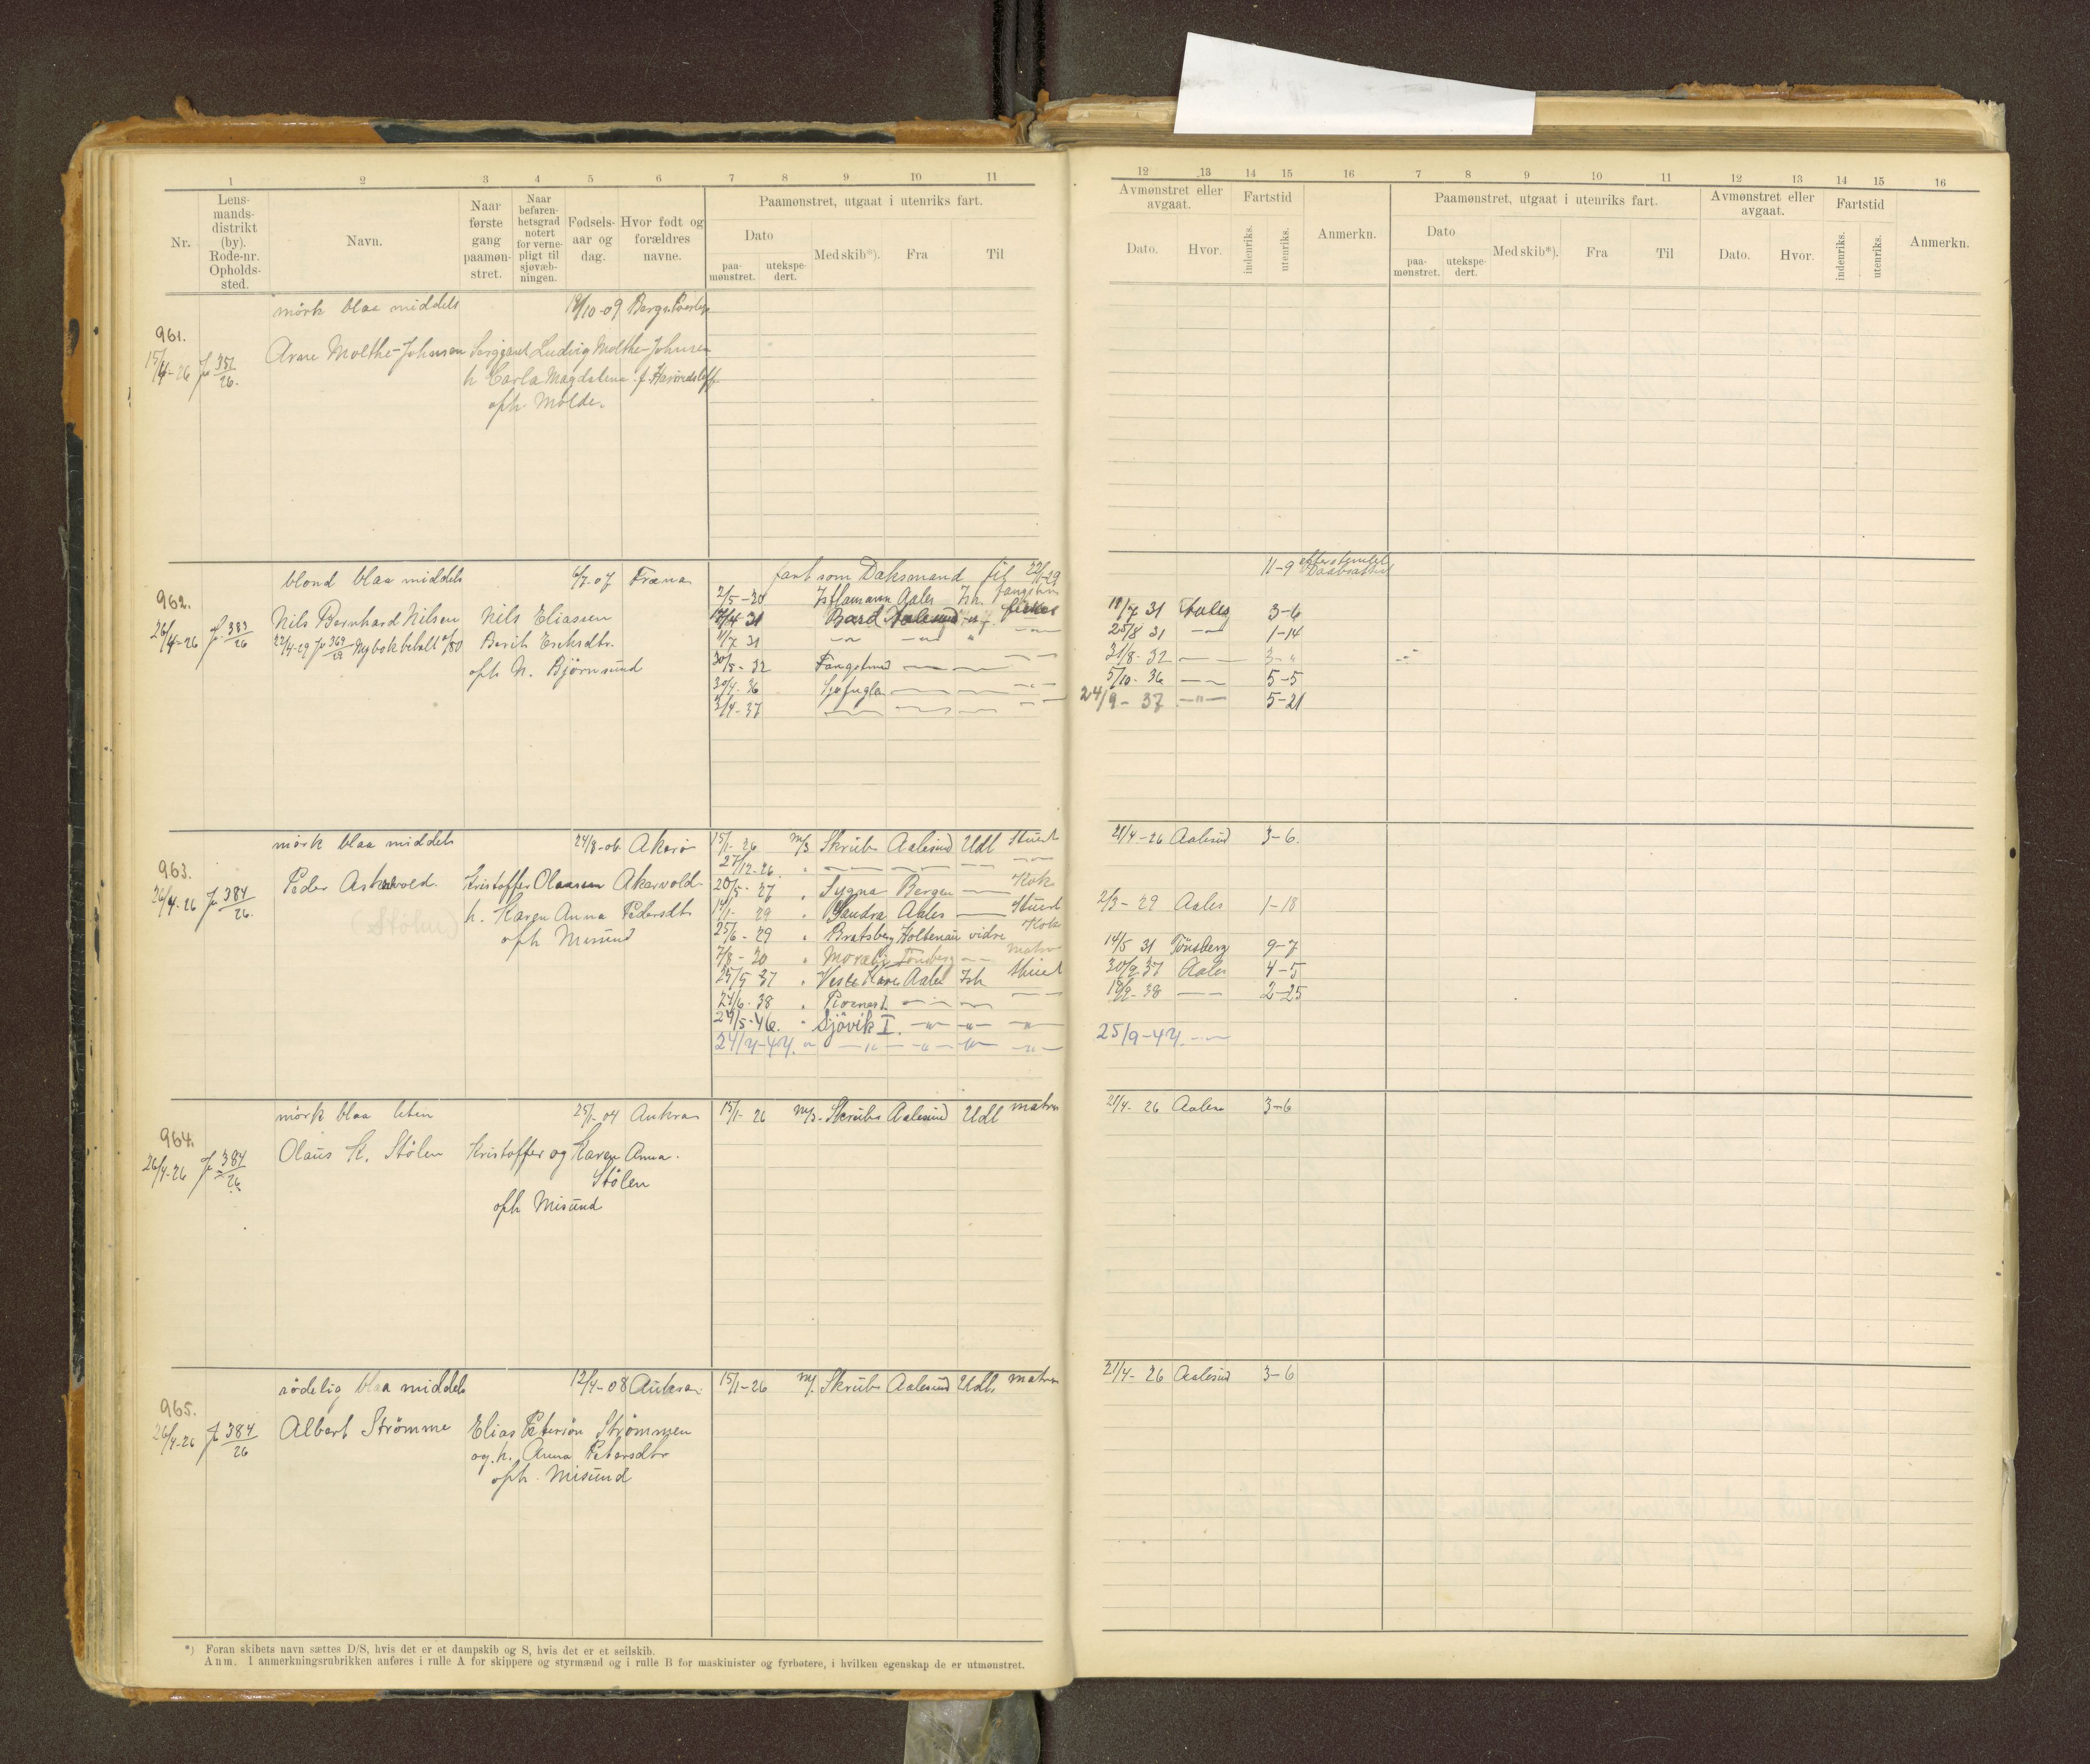 1 2 3 4 5 6 7 8 9 10 11
Nr. Lensmandsdistrikt (by). Rode-nr. Opholdssted. Navn. Naar første gang paamønstret. Naar befarenhetsgrad notert for vernepligt til sjøvæbningen. Fødselsaar og dag. Hvor født og forældres navne.
Paamønstret, utgaat i utenriks fart.
Dato
paamønstret. utekspedert. Med skib*). Fra Til
12 13 14 15 16 7 8 9 10 11 12 13 14 15 16
Avmønstret eller avgaat. Fartstid Paamønstret, utgaat i utenriks fart. Avmønstret eller avgaat. Fartstid
Dato. Hvor. indenriks. utenriks. Anmerkn. Dato paamønstret. utekspedert. Med skib*). Fra Til Dato. Hvor. indenriks. utenriks. Anmerkn.
mörk blaa middels 10-09
961.
15/4-26 Jr 351/26. Arne Molthe-Johnsen Sergeant Ludvig Molthe-Johnsen
h Carla Magdalena f.
oph. Molde.
blond blaa middels 6/7-07 Fræna fart som Daksmand til 22/1-29 11-9
962.
2/5-30 Aales Ish. 18/7 31 Aales 3-6
26/4-26 Jr 383/26 Nils Bernhard Nilsen Nils Eliassen 17/4 31 Bard Aalesund 25/8 31 -"- 1-14
22/4-29 Jr 369/29 Ny bok betalt 0/80 Berit Eriksdtr. 11/7 31 -"- -"- " 31/8-32 3-"
oph N. Björnsund 30/5-32 Fangstmd 5/10-36 5-5
30/4-36 Sjøfuglen 24/9-37 -"- 5-21
3/4-37
mörk blaa middels 24/8-06 Akerö 15/1-26 m/s Skrubs Aalesund Udl Stuert 21/4-26 Aalesund 3-6.
963.
27/12-26.
26/4-26 Jr 384/26. Peder Askervold Kristoffer Olaussen Akervold 20/5-27 " Sygna Bergen Kok
(Stölen) h. Karen Anna Pedersdtr 14/1-29 " Sandra Aales Stuert 2/3-29 Aales 1-18
oph Misund 25/6-29 " Bratsberg Holtenau vidre Kok
7/8-30 " Tönsberg matros 14/5 31 Tönsberg 9-7
25/5 37 " Aales Ish Stuert 30/9 37 Aales 4-5
24/6-38 " 18/9-38 2-25
29/5-46. " Sjövik I. -"- -"- -"-
24/4-47. " -"- -"- -"- -"- 25/9-47.
mörk blaa liten 25/1-04 Aukra 15/1-26 m/s. Skrubs Aalesund Udl matros 21/4-26 Aalesu 3-6
964.
26/4-26 Jr 384/26 Olaus K. Stölen Kristoffer og Karen Anna
Stölen
oph Misund
rödelig blaa middels 12/4-08 Aukra 15/1-26 m/. Skrubs Aalesund Udl. matros 21/4-26 Aalesund 3-6
965.
26/4-26 Jr 384/26 Albert Strömme Elias Petersön Strömmen
og h. Anna Petersdtr
oph. Misund
*) Foran skibets navn sættes D/S, hvis det er et dampskib og S, hvis det er et seilskib.
Anm. I anmerkningsrubrikken anføres i rulle A for skippere og styrmænd og i rulle B for maskinister og fyrbøtere, i hvilken egenskap de er utmønstret.